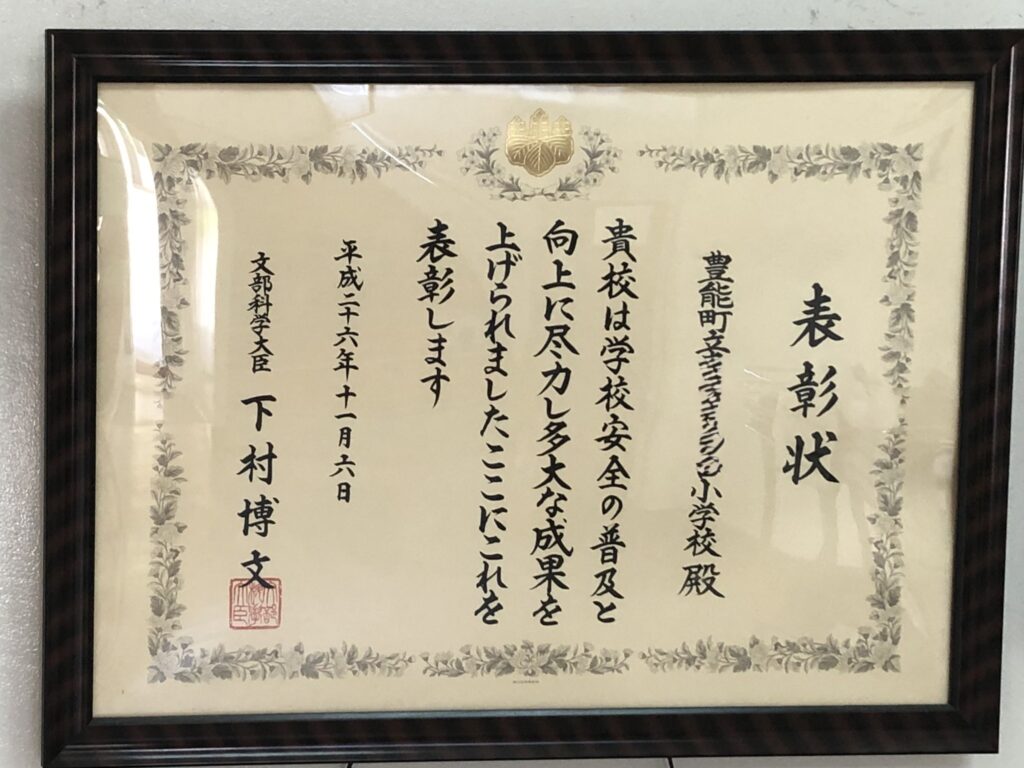 表彰状
豊能町立 小学校殿
貴校は学校安全の普及と
向上に尽力し多大な成果を
上げられましたここにこれを
表彰します
平成二十六年十一月六日
文部科学大臣 下村博文